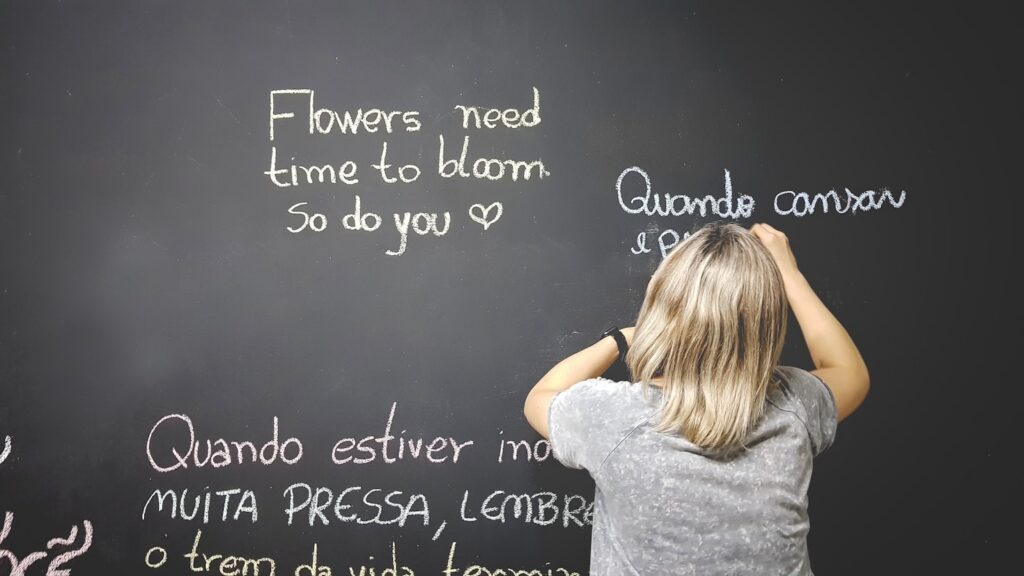 Flowers need
time to bloom.
So do you
Quando cansar
e
Quando estiver
MUITA PRESSA, LEMBRE
o trem da vida